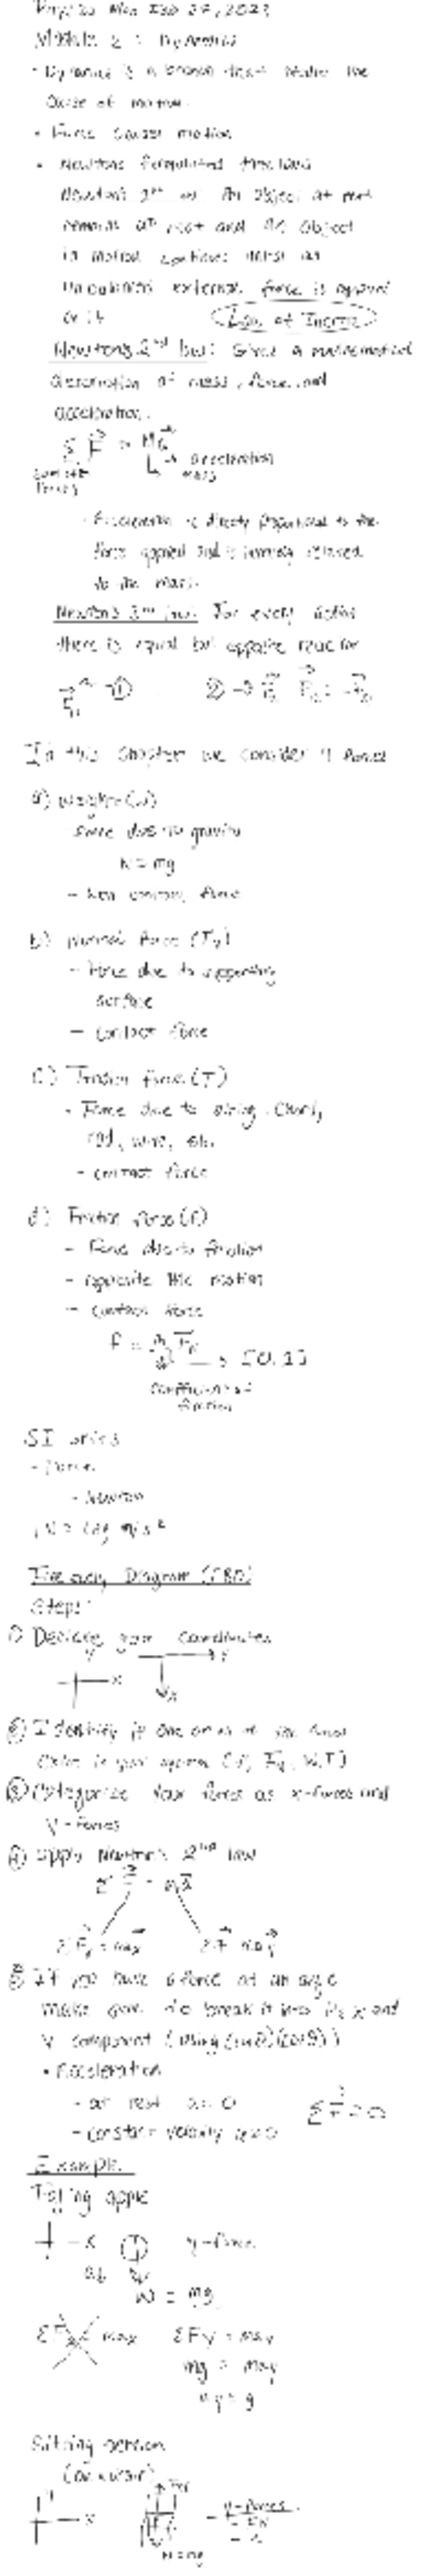 Module 2 : Dynamics
• Dynamics is a branch that studies the
cause of motion.
• Force causes motion
• Newtons formulated three laws
Newton's 1st law: An object at rest
remains at rest and an object
in motion continues until an
unbalanced external force is applied
on it (Law of Inertia)
Newton's 2nd law: Gives a mathematical
description of mass, force, and
acceleration.
Σ F = Ma
acceleration
mass
sum of
forces
- Acceleration is directly proportional to the
force applied and is inversely related
to the mass.
Newton's 3rd law: For every action
there is equal but opposite reaction
In this chapter we consider 4 forces
a) Weight (W)
- Force due to gravity
W = mg
- Non contact force
b) Normal force (FN)
- Force due to supporting
surface
- contact force
c) Tension force (T)
- Force due to string, cord,
rod, wire, etc.
- contact force
d) Friction force (f)
- Force due to friction
- opposite the motion
- contact force
f = μ FN → [0,1]
coefficient of
friction
SI units
- Force
- Newton
1N = 1kg m/s²
Free Body Diagram (FBD)
Steps:
① Declare your coordinates
y x y x
② Identify if one or all of the forces
exist in your system (f, FN, W, T)
③ Categorize your forces as x-forces and
y-forces
④ apply Newton's 2nd law
Σ F = ma
Σ Fx = max Σ F may
⑤ If you have a force at an angle
make sure to break it into its x and
y component (using (sinθ)(cosθ))
• Acceleration
- at rest a=0
- constant velocity a=0 ΣF=0
Example
Falling apple
x y-force
W = mg
ΣF max ΣFy = may
mg = may
ay = g
Sitting person
(on a chair)
y x FN y-forces
- FN
W=mg